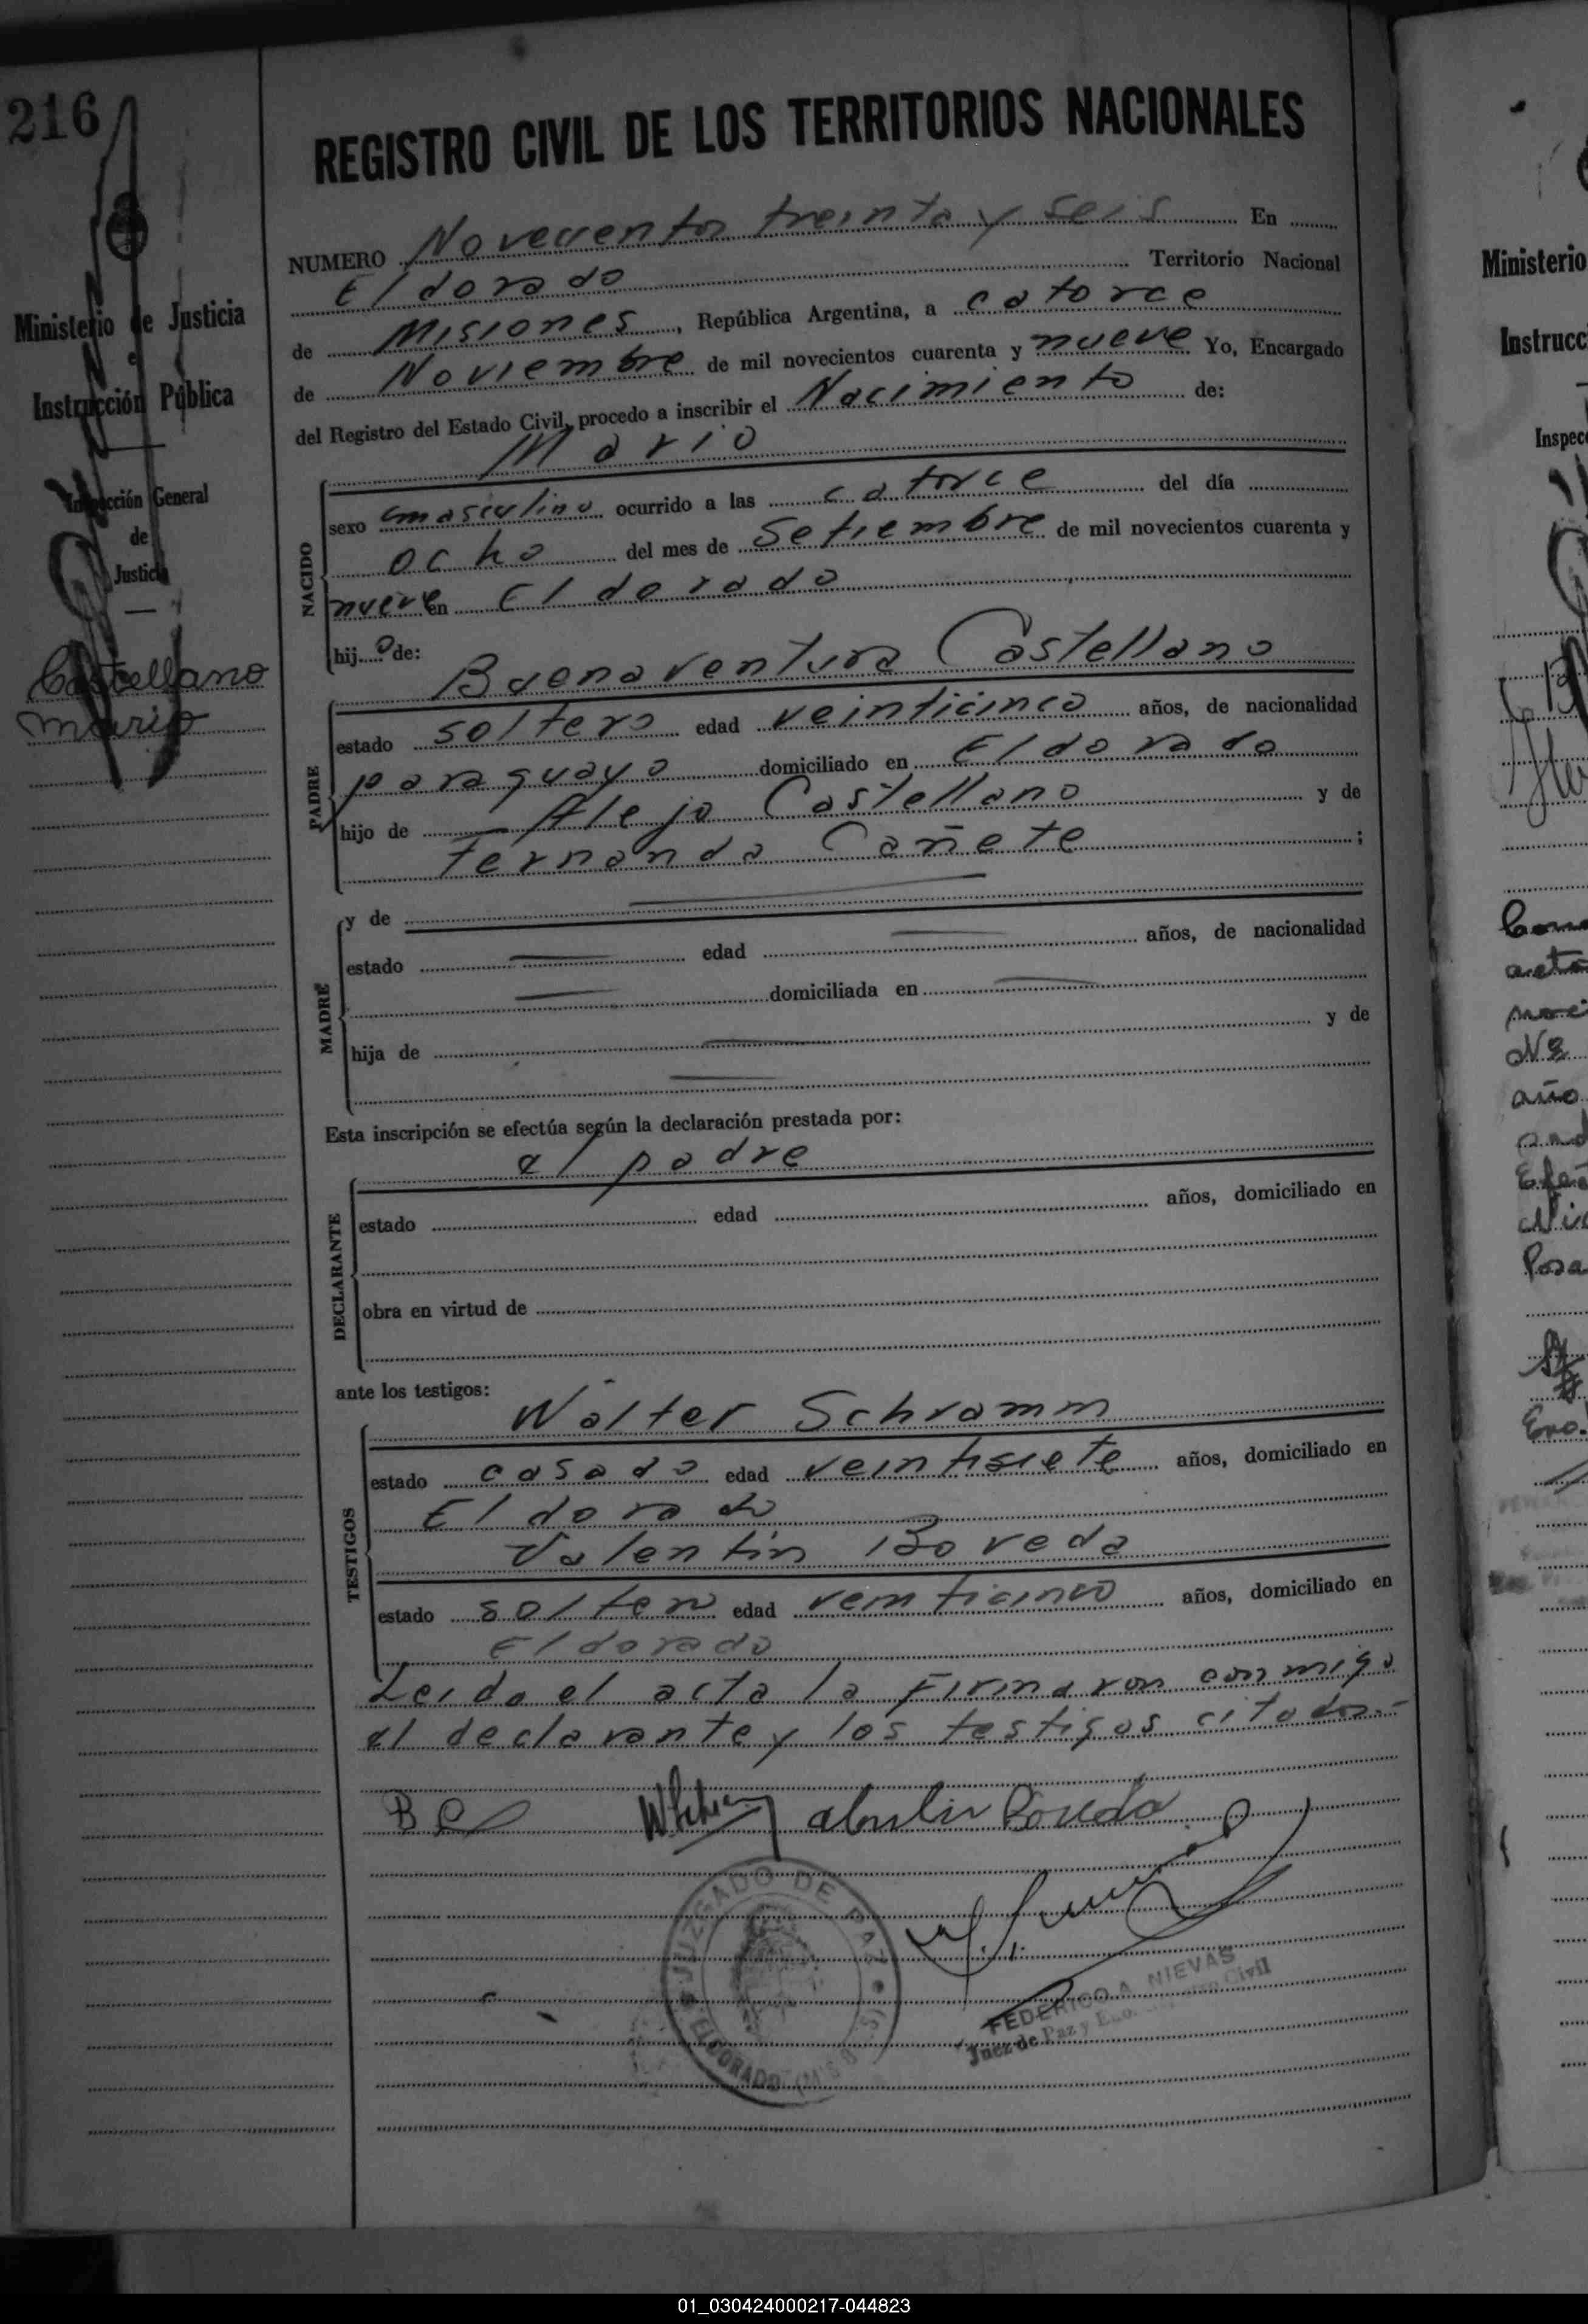 216
Ministerio de Justicia
e
Instrucción Pública
Inspección General
de
Justicia
Castellano
mario
REGISTRO CIVIL DE LOS TERRITORIOS NACIONALES
NUMERO Novecientos treinta y seis En
Eldorado Territorio Nacional
de Misiones, República Argentina, a catorce
de Noviembre de mil novecientos cuarenta y nueve Yo, Encargado
del Registro del Estado Civil, procedo a inscribir el Nacimiento de:
Mario
NACIDO
sexo masculino ocurrido a las catorce del día
ocho del mes de Setiembre de mil novecientos cuarenta y
nueve en Eldorado
hij o de:
Buenaventura Castellano
PADRE
estado soltero edad veinticinco años, de nacionalidad
paraguayo domiciliado en Eldorado
hijo de Alejo Castellano y de
Fernanda Cañete ;
MADRE
y de
estado edad años, de nacionalidad
domiciliada en
hija de y de
Esta inscripción se efectúa según la declaración prestada por:
el padre
DECLARANTE
estado edad años, domiciliado en
obra en virtud de
ante los testigos:
Walter Schramm
TESTIGOS
estado casado edad veintisiete años, domiciliado en
Eldorado
Valentin Boveda
estado soltero edad veinticinco años, domiciliado en
Eldorado
Leido el acta la Firmaron conmigo
el declarante y los testigos citados.-
B C
Boveda
JUZGADO DE PAZ
ELDORADO (MISIONES)
FEDERICO A. NIEVAS
Juez de Paz y Enc. Registro Civil
Ministerio
Instrucc
Inspec
año
Posa
01_030424000217-044823